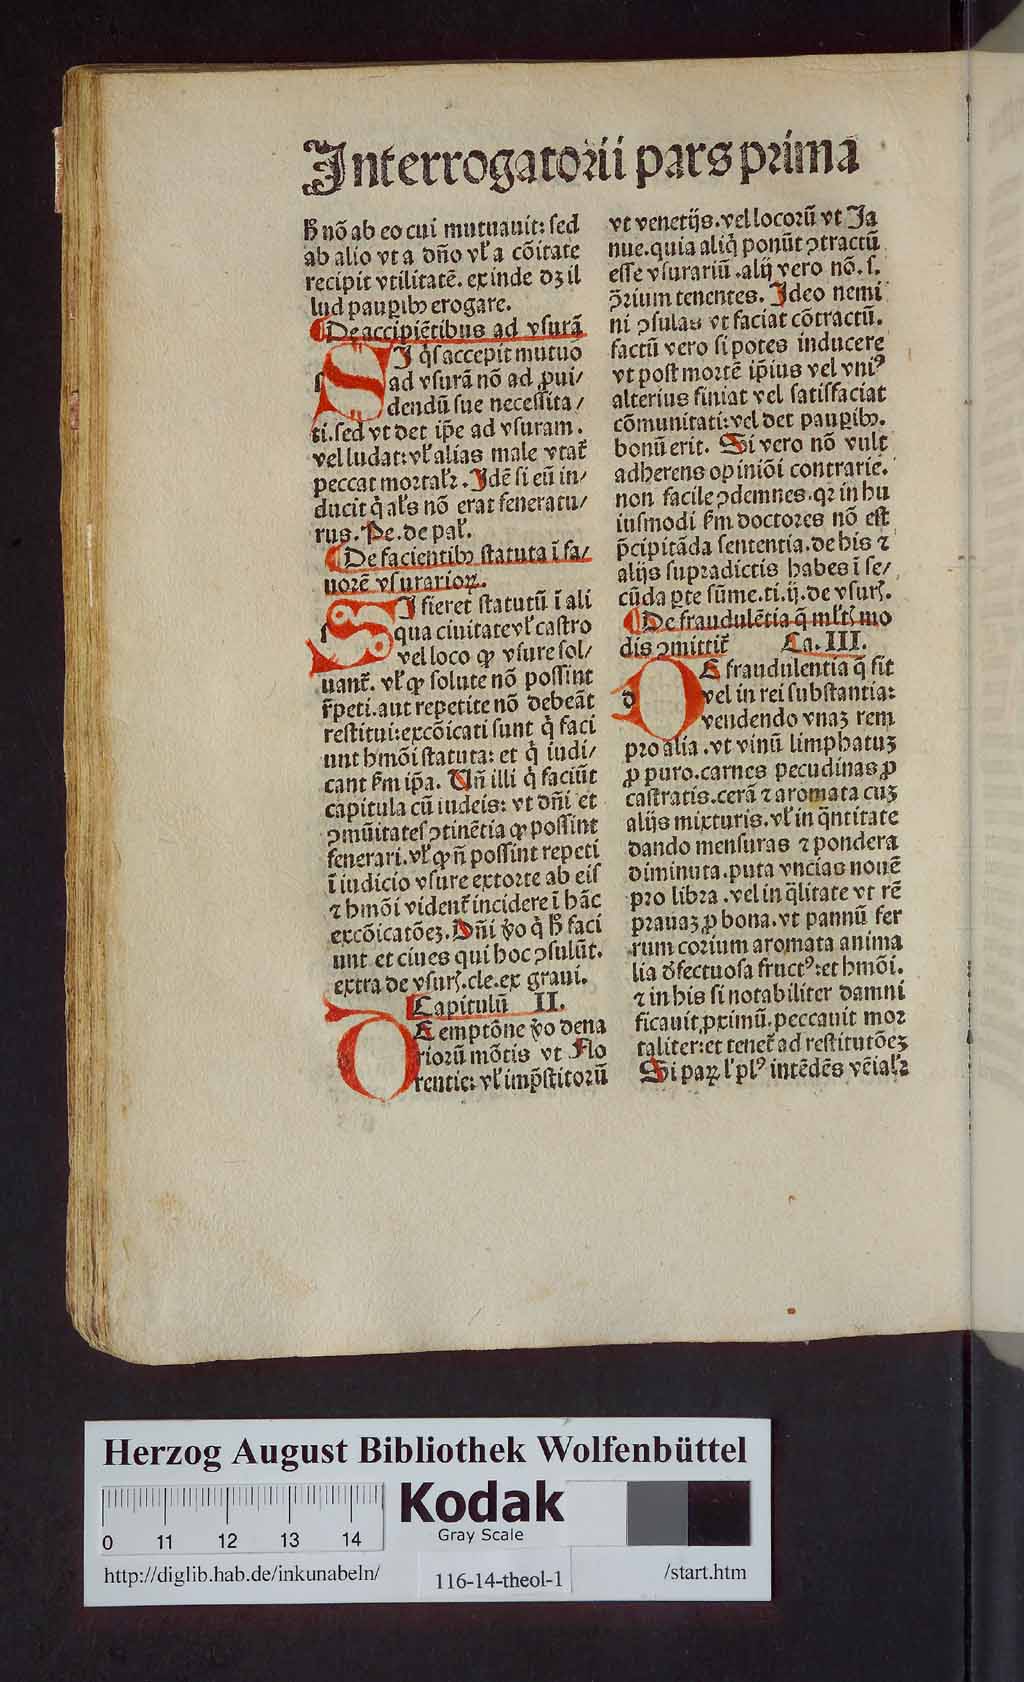 Interrogatorii pars prima
nō ab eo cui mutuauit: sed
ab alio vt a dño vl̓ a cōitate
recipit vtilitatē. ex inde dꝫ il
lud paupibꝫ erogare.
De accipiētibus ad vsurā
SI q̇s accepit mutuo
ad vsurā nō ad ꝓui/
dendū sue necessita/
ti. sed vt det ip̄e ad vsuram.
vel ludat: vl̓ alias male vtat᷑
peccat mortalꝛ̓. Idē si eū in/
ducit q̇ al̓s nō erat feneratu/
rus. Pe. de pal̓.
De facientibꝫ statuta ī fa/
uorē vsurarioꝝ.
SI fieret statutū ī ali
qua ciuitate vl̓ castro
vel loco ꝙ vsure sol/
uant᷑. vl̓ ꝙ solute nō possint
r̄peti. aut repetite nō debeāt
restitui: excōicati sunt q̇ faci
unt hmōi statuta: et q̇ iudi/
cant ẜm ip̄a. Vn̄ illi q̇ faciūt
capitula cū iudeis: vt dn̄i et
ꝯmūitates ꝯtinētia ꝙ possint
fenerari. vl̓ ꝙ n̄ possint repeti
ī iudicio vsure extorte ab eis
⁊ hmōi vident᷑ incidere ī hāc
excōicatōeꝫ. Dn̄i v̊o q̇ faci
unt et ciues qui hoc ꝯsulūt.
extra de vsur̄. cle. ex graui.
Capitulū II.
DE emptōne v̊o dena
riorū mōtis vt Flo
rentie: vl̓ imp̄stitorū
vt venetijs. vel locorū vt Ja
nue. quia aliq̇ ponūt ꝯtractū
esse vsurariū. alij vero nō. s.
ꝯ̄rium tenentes. Ideo nemi
ni ꝯsulas vt faciat cōtractū.
factū vero si potes inducere
vt post mortē ip̄ius vel vniꝰ
alterius finiat vel satisfaciat
cōmunitati: vel det paupibꝫ.
bonū erit. Si vero nō vult
adherens opiniōi contrarie.
non facile ꝯdemnes. qꝛ in hu
iusmodi ẜm doctores nō est
p̄cipitāda sententia. de his ⁊
alijs supradictis habes ī se/
cūda ꝑte sūme. ti. ij. de vsur̄.
De fraudulētia q̄ ml̓t̄ mo
dis ꝯmittit᷑ Ca. III.
DE fraudulentia q̄ sit
vel in rei substantia:
vendendo vnaꝫ rem
pro alia. vt vinū limphatuꝫ
ꝓ puro. carnes pecudinas ꝓ
castratis. cerā ⁊ aromata cuꝫ
alijs mixturis. vl̓ in q̄ntitate
dando mensuras ⁊ pondera
diminuta. puta vncias nouē
pro libra. vel in q̄litate vt rē
prauaꝫ ꝓ bona. vt pannū fer
rum corium aromata anima
lia defectuosa fructꝰ: et hmōi.
⁊ in his si notabiliter damni
ficauit ꝓximū. peccauit mor
taliter: et tenet᷑ ad restitutōeꝫ
Si paꝝ l̓ plꝰ intēdēs vēialꝛ̓
Herzog August Bibliothek Wolfenbüttel
0 11 12 13 14
Kodak
Gray Scale
http://diglib.hab.de/inkunabeln/
116-14-theol-1
/start.htm